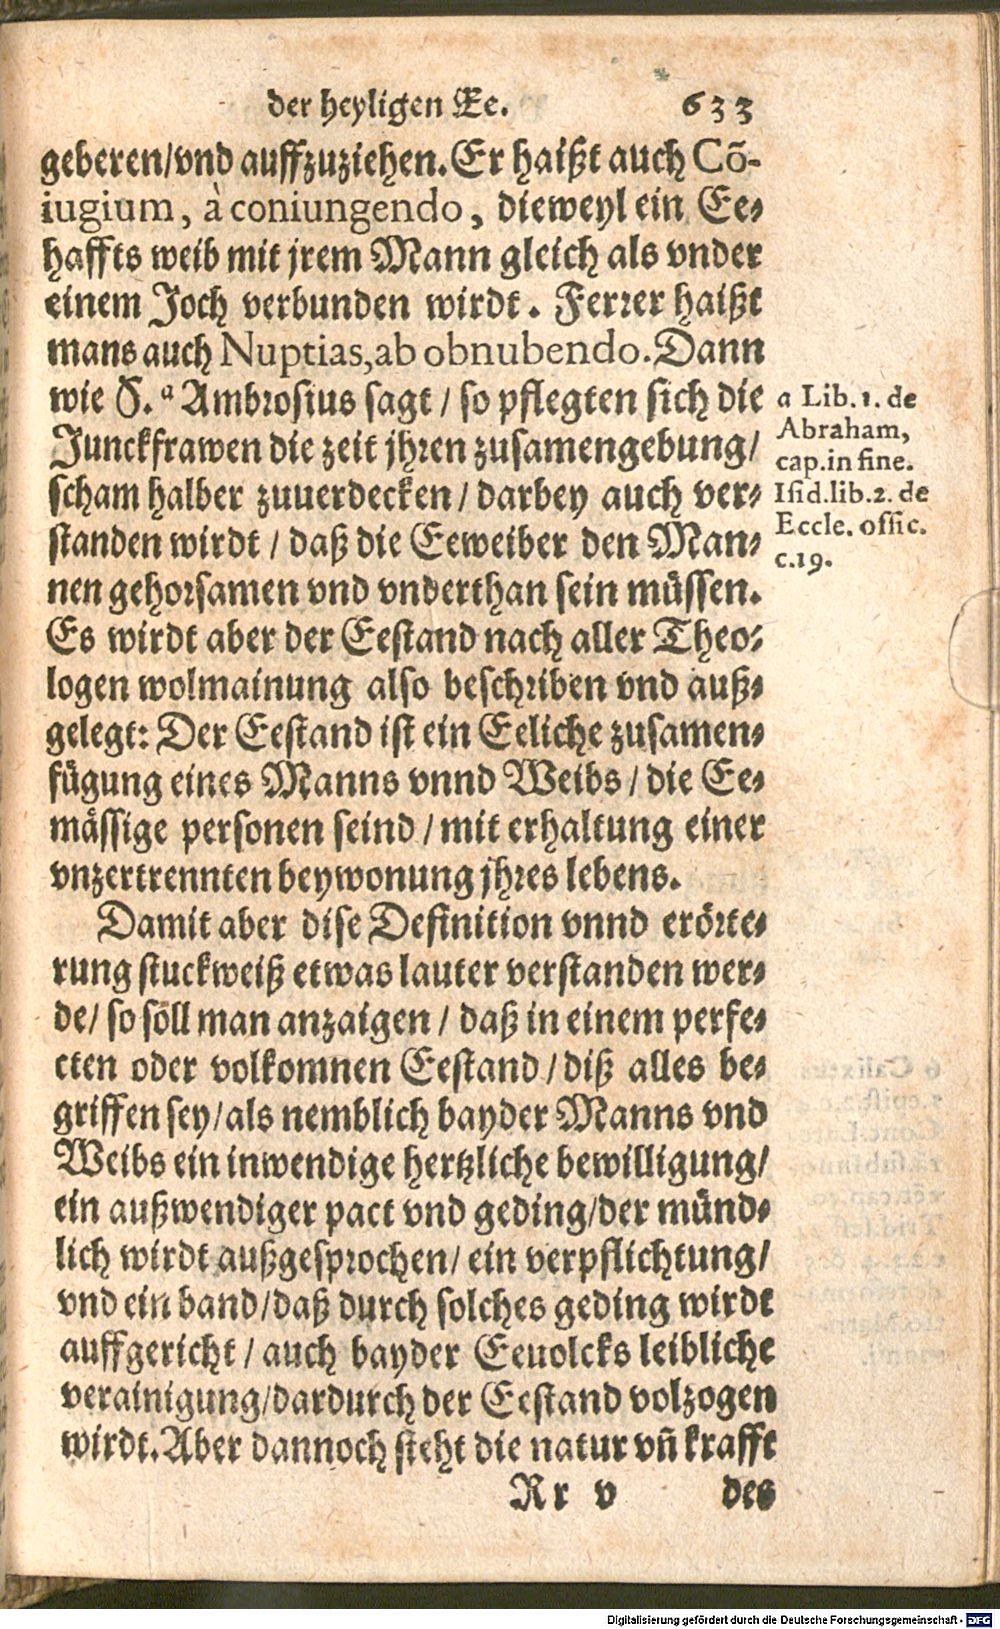 der heyligen Ee. 633
geberen/vnd auffzuziehen. Er haißt auch Cõ-
iugium, à coniungendo, dieweyl ein Ee-
haffts weib mit jrem Mann gleich als vnder
einem Joch verbunden wirdt. Ferrer haißt
mans auch Nuptias, ab obnubendo. Dann
wie S. a Ambrosius sagt / so pflegten sich die
Junckfrawen die zeit jhren zusamengebung/
scham halber zuuerdecken / darbey auch ver-
standen wirdt / daß die Eeweiber den Man-
nen gehorsamen vnd vnderthan sein müssen.
Es wirdt aber der Eestand nach aller Theo-
logen wolmainung also beschriben vnd auß-
gelegt: Der Eestand ist ein Eeliche zusamen-
fügung eines Manns vnnd Weibs / die Ee-
mässige personen seind / mit erhaltung einer
vnzertrennten beywonung jhres lebens.
Damit aber dise Definition vnnd erörte-
rung stuckweiß etwas lauter verstanden wer-
de / so söll man anzaigen / daß in einem perfe-
cten oder volkomnen Eestand / diß alles be-
griffen sey/als nemblich bayder Manns vnd
Weibs ein inwendige hertzliche bewilligung/
ein außwendiger pact vnd geding/der münd-
lich wirdt außgesprochen / ein verpflichtung/
vnd ein band/daß durch solches geding wirdt
auffgericht / auch bayder Eeuolcks leibliche
verainigung/dardurch der Eestand volzogen
wirdt. Aber dannoch steht die natur vñ krafft
Rr v des
a Lib. 1. de
Abraham,
cap. in fine.
Isid. lib. 2. de
Eccle. offic.
c. 19.
Digitalisierung gefördert durch die Deutsche Forschungsgemeinschaft - DFG